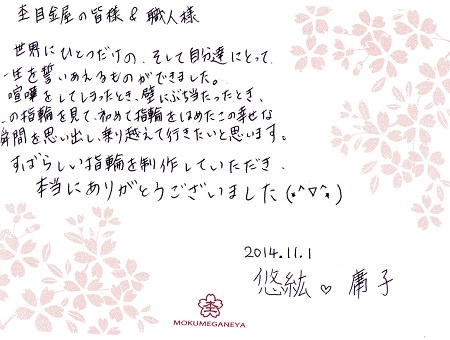 杢目金屋の皆様 & 職人様
世界にひとつだけの、そして自分達にとって
一生を誓いあえるものができました。
喧嘩をしてしまったとき、壁にぶち当たったとき、
の指輪を見て、初めて指輪をはめたこの幸せな
瞬間を思い出し、乗り越えて行きたいと思います。
すばらしい指輪を制作していただき、
本当にありがとうございました(*^▽^*)
2014.11.1
悠紘 ♡ 庸子
MOKUMEGANEYA